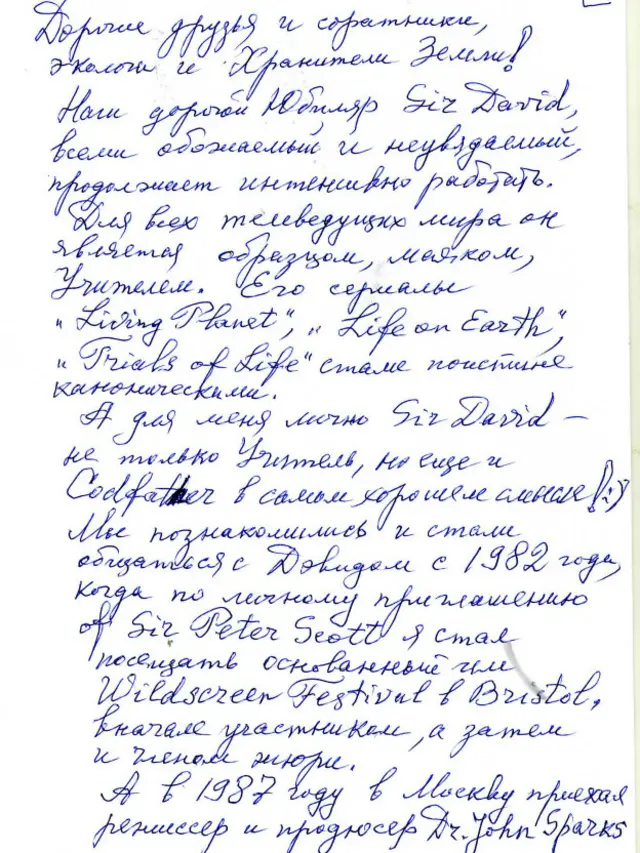 Дорогие друзья и соратники,
экологи и Хранители Земли!
Наш дорогой Юбиляр Sir David,
всеми обожаемый и неувядаемый,
продолжает интенсивно работать.
Для всех телеведущих мира он
является образцом, маяком,
Учителем. Его сериалы
„Living Planet", „Life on Earth",
„Trials of Life" стали поистине
каноническими.
А для меня лично Sir David –
не только Учитель, но еще и
Godfather в самом хорошем смысле!:)
Мы познакомились и стали
общаться с Дэвидом с 1982 года,
когда по личному приглашению
of Sir Peter Scott я стал
посещать основанный им
Wildscreen Festival в Bristol,
вначале участником, а затем
и членом жюри.
А в 1987 году в Москву приехал
режиссер и продюсер Dr. John Sparks